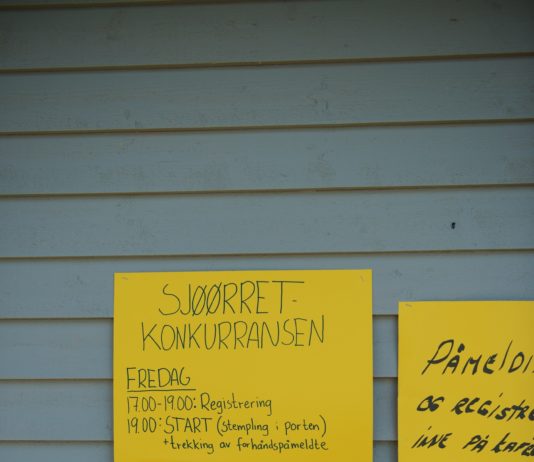 SJØØRRET-
KONKURRANSEN
FREDAG
17.00-19.00: Registrering
19.00: START (stempling i porten)
+trekking av forhåndspåmeldte
OG
INNE PÅ